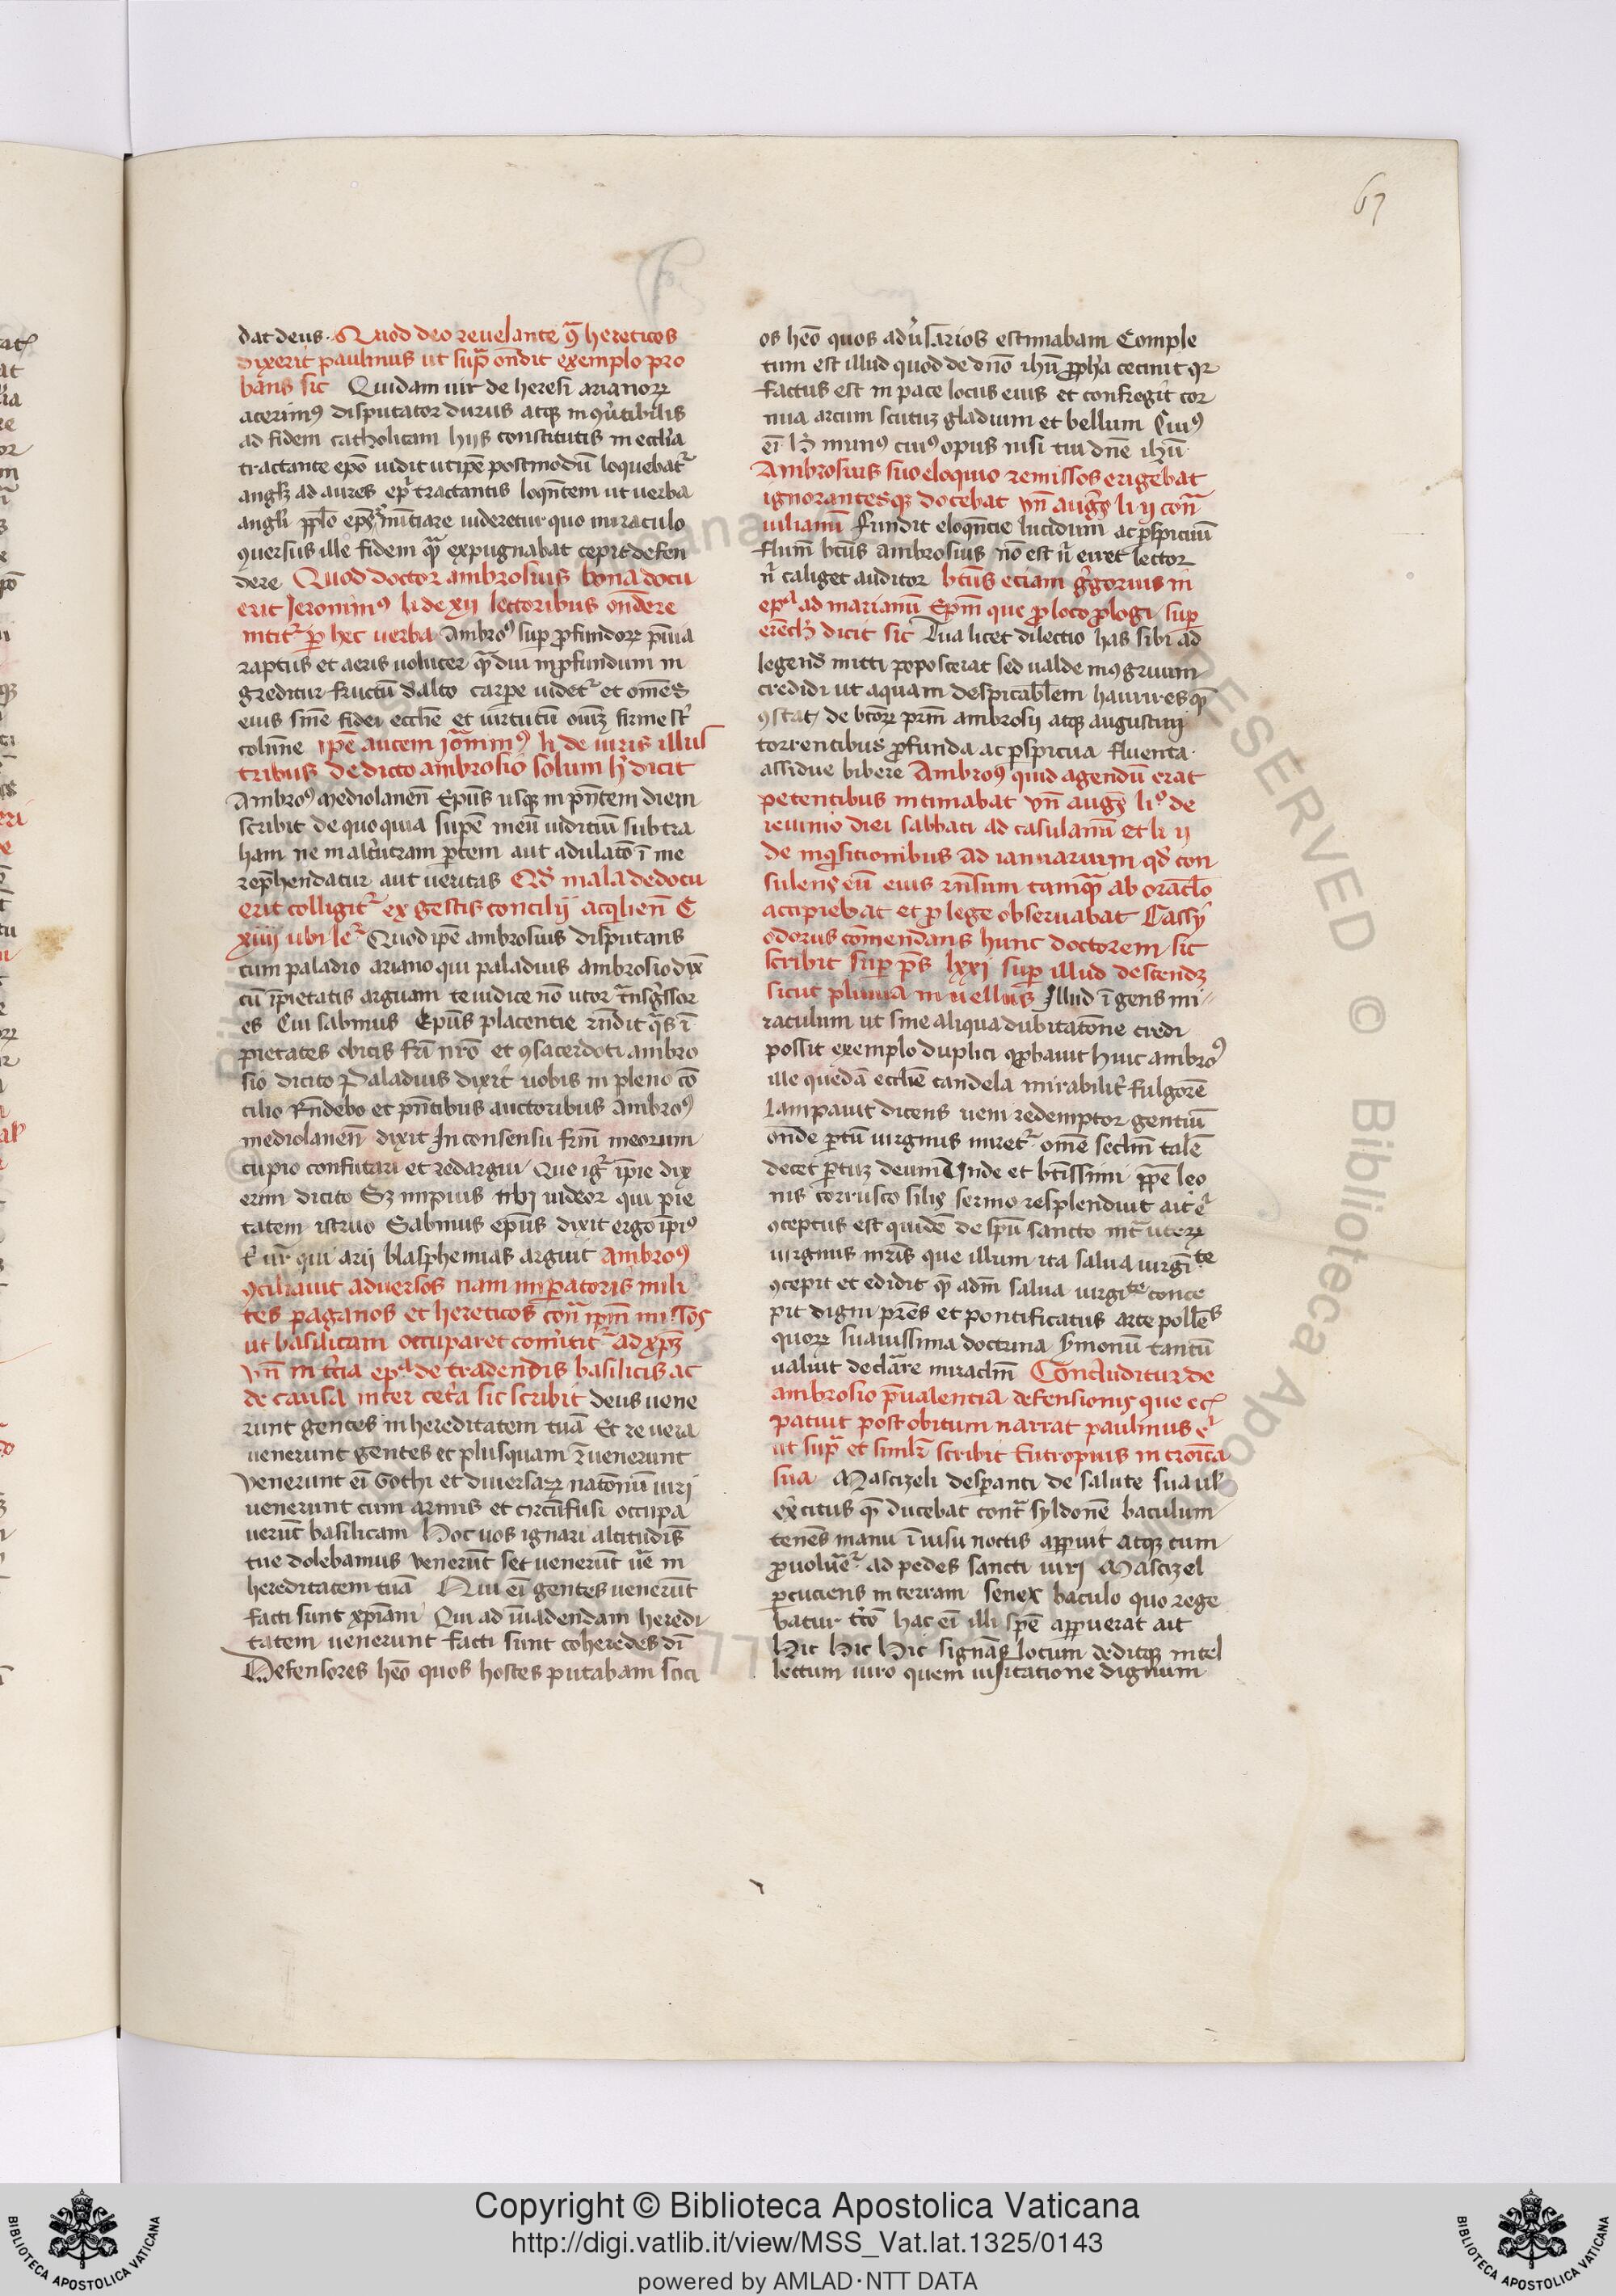 67
dat deus. Quod deo reuelante ꝯ̄ hereticos
dixerit paulinus ut sup̄ ondit exemplo pro
bans sic Quidam uir de heresi arianorꝝ
acerimꝰ disputator durus atqꝫ inꝯu̇tibilis
ad fidem catholicam hijs constitutis in ecclia
tractante epō uidit ut ip̄e postmodū loquebat᷑
angl̄ ad aures ep̄i tractantis loqn̄tem ut uerba
angli pp̄lo ep̄s nūtiare uideretur quo miraculo
ꝯuersus ille fidem qua̅ expugnabat cepit defen
dere Quod doctor ambrosius bona docu
erit Jeronimꝰ li de xij lectoribus on̄dere
intit᷑ ꝑ hec uerba Ambroꝰ sup ꝓfundorꝝ
raptus et aeris uolucer qua̅diu in ꝓfundum in
greditur fructū d̓ alto carpe uidet᷑ et om̄es
eius sn̄ie fidei eccl̄ie et uirtutū oniū firme st̄
colūne ip̄e autem Jo̅inimꝰ li de uiris illus
tribus de dicto ambrosio solum h̓ dicit
Ambroꝰ mediolanen̄ Ep̄us usqꝫ in pn̄tem diem
scribit de quo quia sup̄e meū iudiciū subtra
ham ne in alt̓utram ꝑtem aut adulatō ī me
rep̄hendatur aut ueritas Qd̓ mala dedocu
erit colligit᷑ ex gestis concilij acq̓lien̄ C
xiiij ubi le᷑ Quod ip̄e ambrosius disputans
cum paladio ariano qui paladius ambrosio dix̄
cū īpietatis arguam te iudice nō utor tn̄sgs̓sor
es Cui sabinus Ep̄us placentie rn̄dit qs̓ ī
pietates obicis frī nr̄o et ꝯsacerdoti ambro
sio dicito Paladius dixit uobis in pleno cō
cilio Rn̄debo et pn̄tibus auctoribus Ambroꝰ
mediolanen̄ dixit In consensu frm̄ meorum
cupio confutari et redargui Que ig᷑ īpie dix
erim dicito Sꝫ impius tibi uideor qui pie
tatem astruo Sabinus ep̄us dixit ergo īpiꝰ
t̓ ur̄ qui arij blasphemias arguit Ambroꝰ
ꝯciliauit aduersos nam imꝑatoris mili
tes paganos et hereticos con̄ ip̄m missos
ut basilicam occuparet conu̇tit᷑ ad xp̄ꝫ
vn̄ in tc̓ia ep̄a de tradendis basilicis ac
de causa inter cet̓a sic scribit deus uene
runt gentes in hereditatem tuā Et re uera
uenerunt gentes et plusquam ꝛ̄uenerunt
Venerunt ei̅ Gothi et diuersarꝝ natōnū uiri
uenerunt cum armis et circūfusi occupa
uerūt basilicam Hoc uos ignari altitudīs
tue dolebamus venerūt set uenerūt ue̅ in
hereditatem tuā Qui ei̅ gentes uenerūt
facti sunt xp̄iani Qui ad īuadendam heredi
tatem uenerunt facti sunt coheredes dī
Defensores heō quos hostes putabam soci
os heō quos adu̇sarios estimabam Comple
tum est illud quod de dn̄o ihū ꝓph̓a cecinit qꝛ
factus est in pace locus eius et confregit cor
nua arcum scutuꝫ gladium et bellum Cuiꝰ
ei̅ h̓ munꝰ cuiꝰ opus nisi tui dn̄e ihū
Ambrosius suo eloquio remissos erigebat
ignorantesqꝫ docebat vn̄ augꝰ li ij con̄
iulianū fundit eloqn̄tie lucidum ac ꝑspicuū
flum̄ bt̄us ambrosius nō est n̄ erret lector
n̄ caliget auditor bt̄us eciam gg̓orius in
ep̄a ad marianū Ep̄m que ꝓ loco ꝓlogi sup
ezech̓ dicit sic Tua licet dilectio has sibi ad
legend̓ mitti poposcerat sed ualde inꝯgruum
credidi ut aquam despicabl̄em hauriresqꝫ
ꝯstat de bt̄orꝝ prm̄ ambrosij atqꝫ augustini
torrentibus ꝓfunda ac ꝑspicua fluenta.
assidue bibere Ambroꝰ quid agendū erat
petentibus intimabat vn̄ augꝰ liᵒ de
ieiunio diei sabbati ad casulanū et li ij
de inq̓sitionibus ad ianuarium qd̓ con
sulens eū eius rn̄sum tamqua̅ ab oracl̄o
accipiebat et ꝓ lege obseruabat Cassy
odorus cōmendans hunc doctorem sic
scribit sup ps̄ lxxj sup illud descendꝫ
sicut pluuia in uellus Illud īgens mi
raculum ut sine aliqua dubitatōne credi
possit exemplo duplici ꝓbauit huic ambroꝰ
ille quedā eccl̄ie candela mirabilit̓ fulgorē
lampauit dicens ueni redemptor gentiū
ond̄e ꝑtū uirginis miret᷑ om̄e seclm̄ talē
decet ꝑtuꝫ deum Inde et bt̄issimi pp̄e leo
nis corrusco silis sermo resplenduit ait e᷑
ꝯceptus est quidē de spū sancto int̓ uterꝝ
uirginis mr̄is que illum ita salua uirgīᵗᵉ
ꝯcepit et edidit qua̅ adm̄ salua uirgiᵗᵉ conce
pit digni pr̄es et pontificatus arte pollēs
quorꝝ suauissima doctrina s̓monū tantū
ualuit declarare miraclm̄ Concluditur de
ambrosio p̄ualencia defensionis que ec᷑
patuit post obitum narrat paulinus e᷑
ut sup̄ et simlr̄ scribit Eutropius in cronīca
sua Mascizeli despanti de salute sua ul̓
ex̓citus que̅ ducebat cont̓ syldonē baculum
tenēs manu ī uisu noctis apparuit Atqꝫ cum
ꝓuolue̅t᷑ ad pedes sancti uiri Mascizel
ꝑcuciens in terram senex baculo quo rege
batur tc̓ō hac ei̅ illi spē apparuerat ait
Hic Hic Hic signāsqꝫ locum deditqꝫ intel
lectum uiro quem uisitatione dignum
Copyright © Biblioteca Apostolica Vaticana
http://digi.vatlib.it/view/MSS_Vat.lat.1325/0143
powered by AMLAD·NTT DATA
BIBLIOTECA APOSTOLICA VATICANA
BIBLIOTECA APOSTOLICA VATICANA